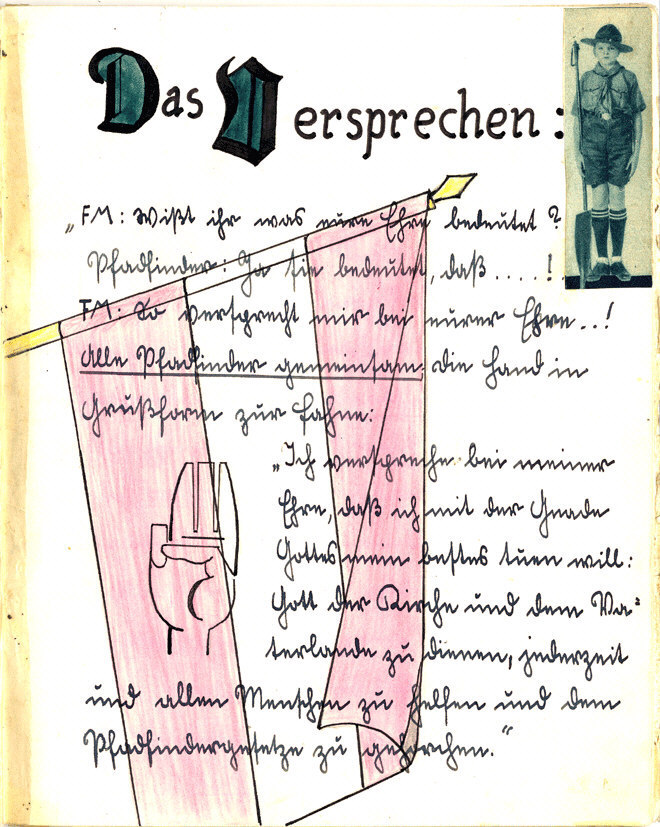 Das Versprechen:
„FM: Wißt ihr was eure Ehre bedeutet?
Pfadfinder: Ja sie bedeutet, daß.....!
FM: So versprecht mir bei eurer Ehre..!
Alle Pfadfinder gemeinsam, die Hand in
Grußform zur Fahne:
„Ich verspreche bei meiner
Ehre, daß ich mit der Gnade
Gottes mein bestes tuen will:
Gott der Kirche und dem Va-
terlande zu dienen, jederzeit
und allen Menschen zu helfen und dem
Pfadfindergesetze zu gehorchen.“